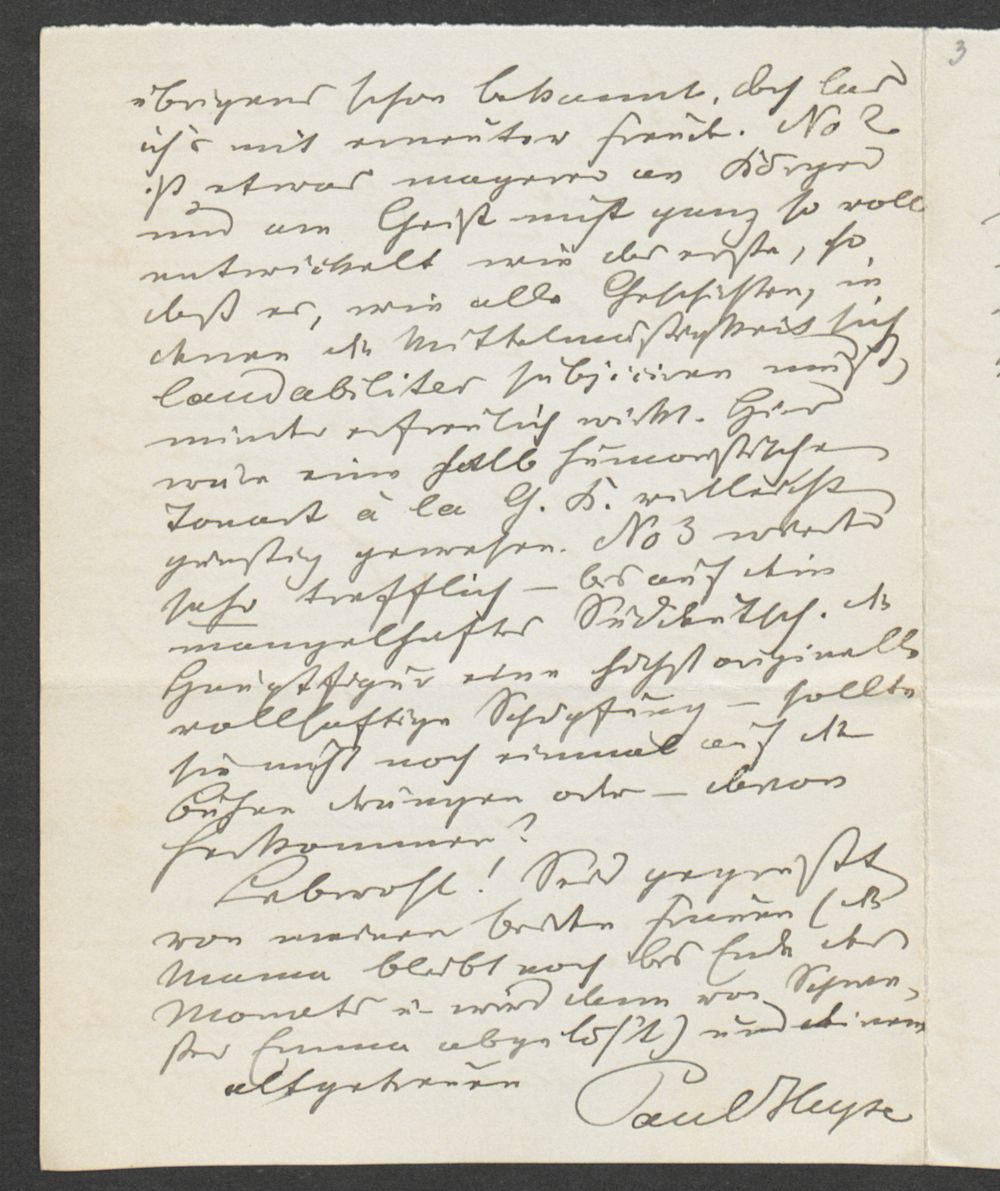 3
übrigens schon bekannt, doch las
ich's mit erneuter Freude. No 2
ist etwas mager an Körper
und am Geist nicht ganz so voll
entwickelt wie das erste, so
daß es, wie alle Geschichten, in
denen die Mittelmäßigkeit sich
laudabiliter subjiciren muß,
minder erfreulich wirkt. Hier
wäre eine halb humoristische
Tonart à la G. K. vielleicht
günstig gewesen. No 3
sehr trefflich – bis auf dein
mangelhaftes Süddeutsch. Die
Hauptfigur eine höchst originelle
vollsaftige Schöpfung – sollte
sie nicht noch einmal auf die
Bühne dringen oder – davon
herkommen?
Lebwohl! Seid gegrüßt
von meinen beiden Frauen (die
Mama bleibt noch bis Ende des
Monats u. wird dann von Schwe-
ster Emma abgelös't) und deinem
altgetreuen
Paul Heyse